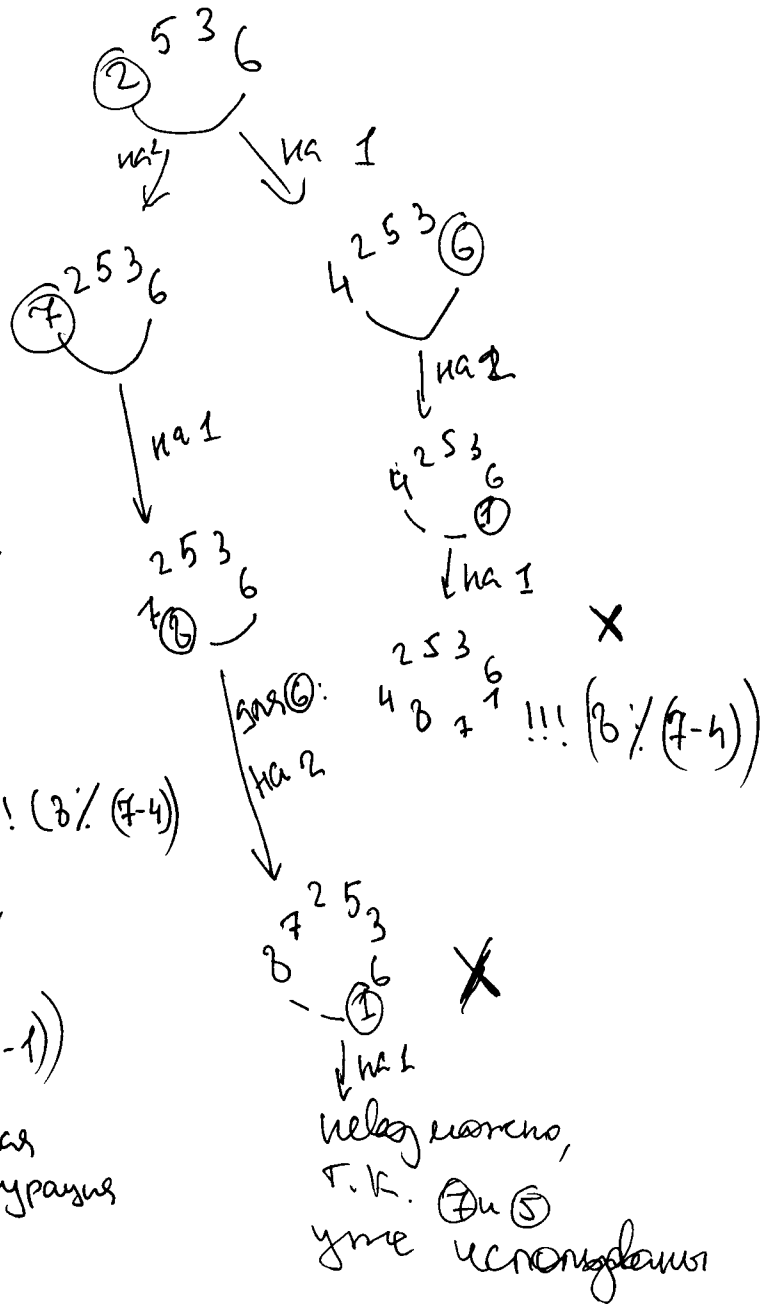 2 5 3 6
на 2
на 1
7 2 5 3 6
4 2 5 3 6
на 1
на 2
2 5 3 6
7 8
4 2 5 3 6
1
на 1
для 6:
на 2
2 5 3 6
4 8 7 1 !!! (8 ⁒ (7-4))
! (8 ⁒ (7-4))
2 5
7 3
8 6
1
-1))
на 1
невозможно,
т.к. 7 и 5
уже использованы